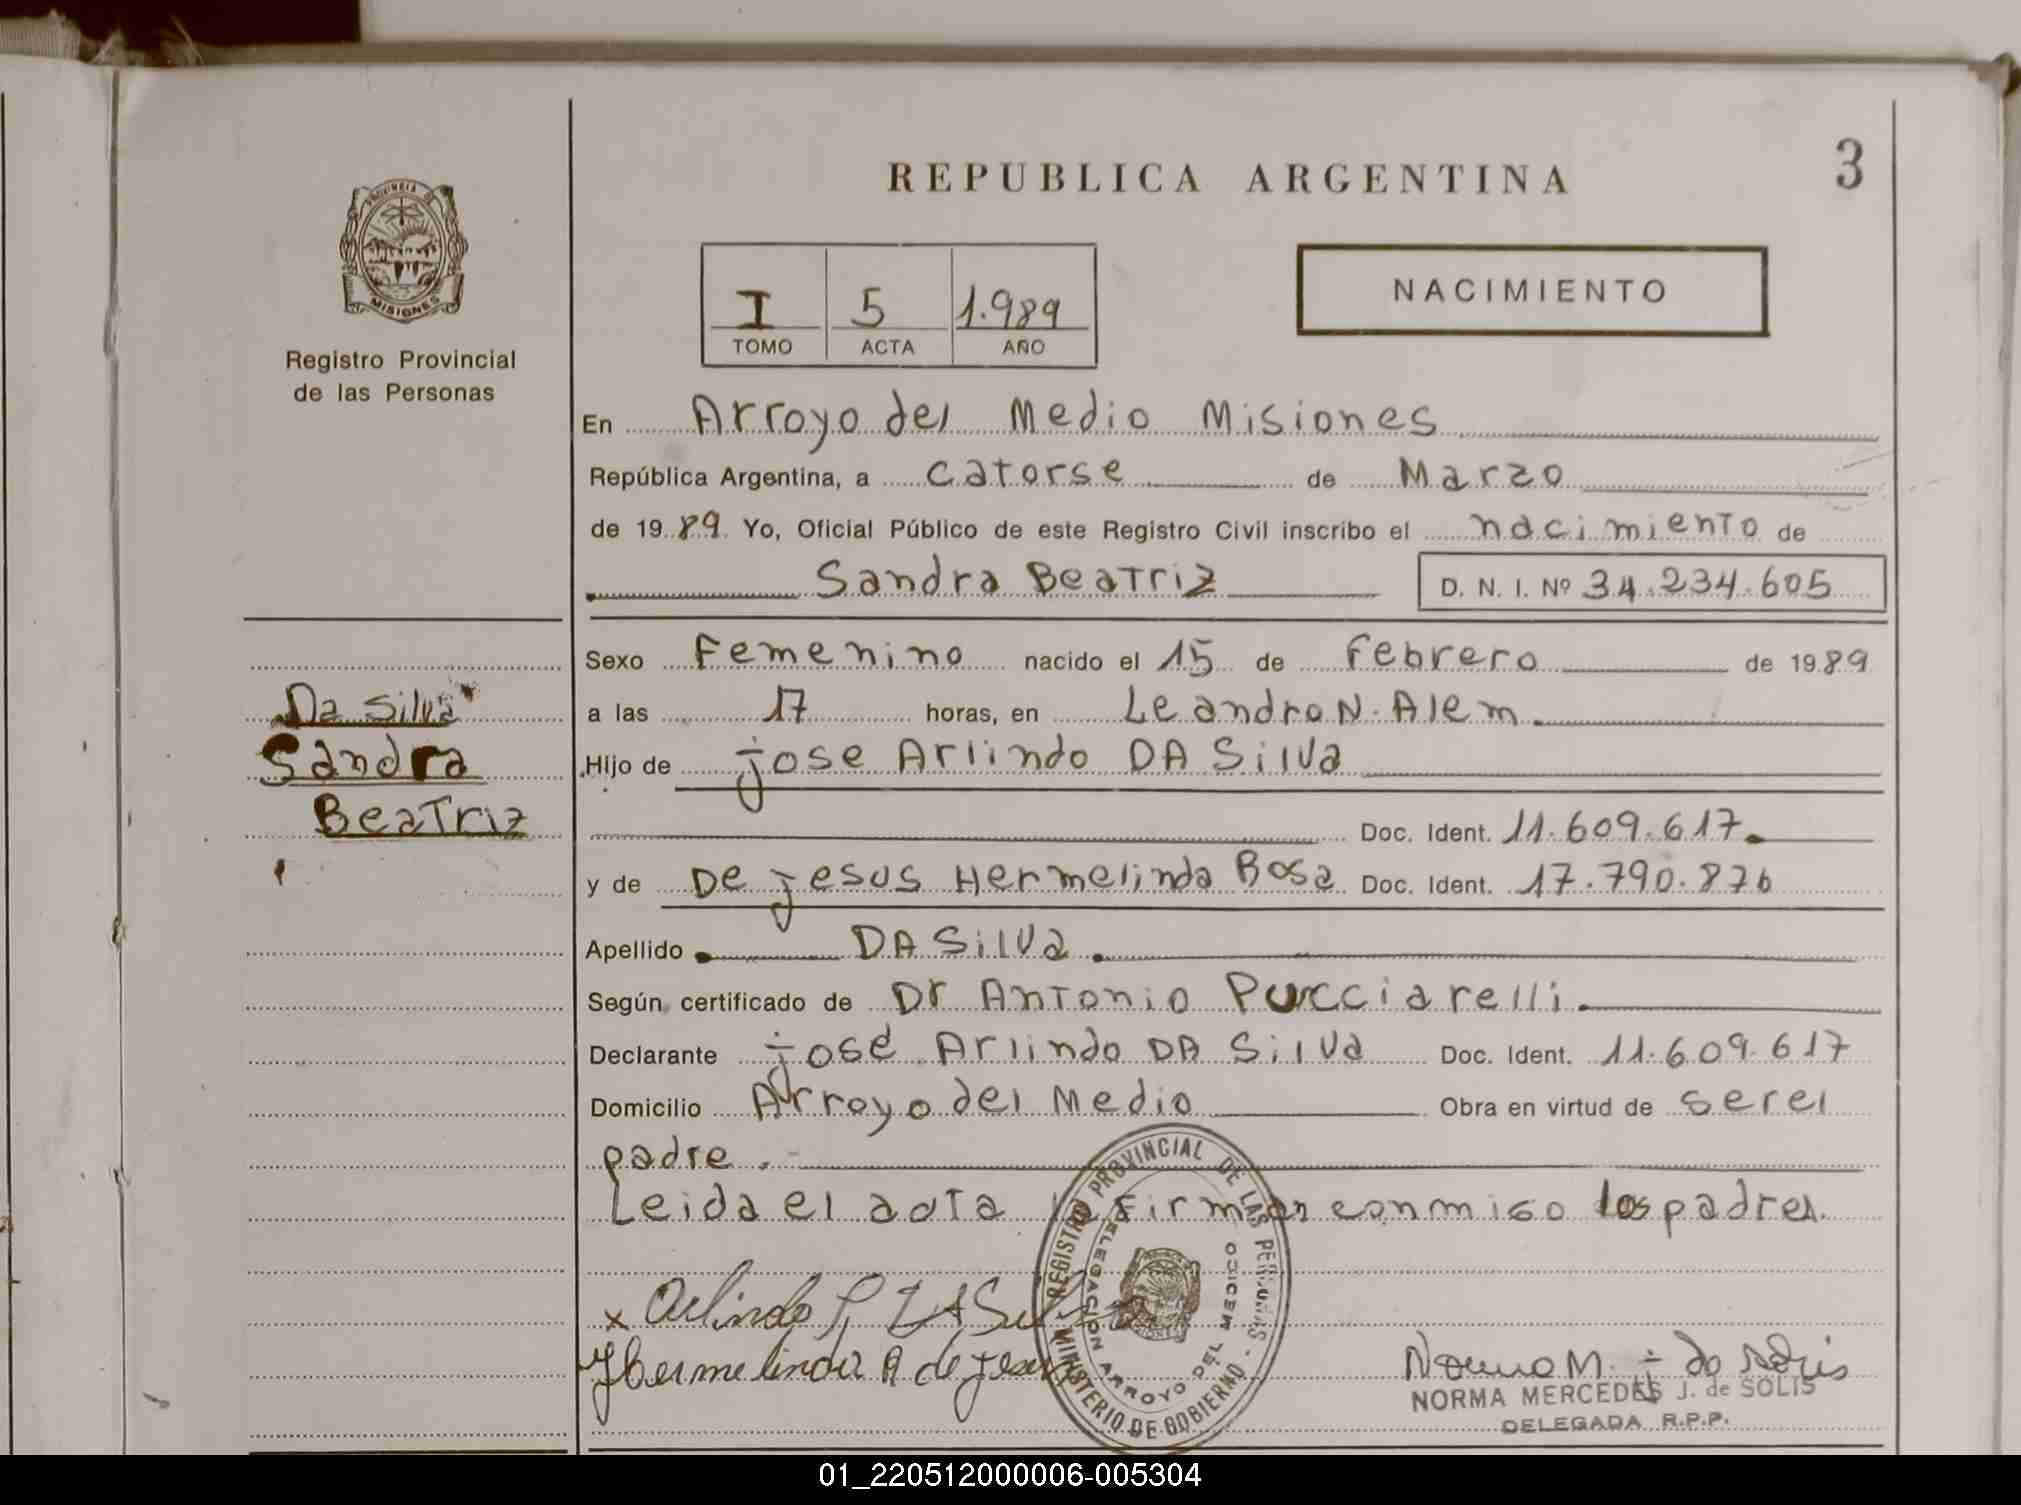 REPUBLICA ARGENTINA
3
PROVINCIA DE
MISIONES
Registro Provincial
de las Personas
I 5 1.989
TOMO ACTA AÑO
NACIMIENTO
En Arroyo del Medio Misiones
República Argentina, a catorse de Marzo
de 1989 Yo, Oficial Público de este Registro Civil inscribo el nacimiento de
Sandra Beatriz D. N. I. Nº 34.234.605
Sexo Femenino nacido el 15 de Febrero de 1989
a las 17 horas, en Leandro N. Alem.
Hijo de jose Arlindo DA Silva
Doc. Ident. 11.609.617.
y de De jesus Hermelinda Rosa Doc. Ident. 17.790.876
Apellido DA Silva
Según certificado de Dr Antonio Pucciarelli.
Declarante josé Arlindo DA Silva Doc. Ident. 11.609.617
Domicilio Arroyo del Medio Obra en virtud de ser el
padre.
Leida el acta la firman conmigo los padres.
Da Silva
Sandra
Beatriz
x Arlindo J. DA Silva
Hermelinda R de jesus
REGISTRO PROVINCIAL DE LAS PERSONAS - MINISTERIO DE GOBIERNO
DELEGACION ARROYO DEL MEDIO
Norma M. j de Solis
NORMA MERCEDES J. de SOLIS
DELEGADA R.P.P.
01_220512000006-005304